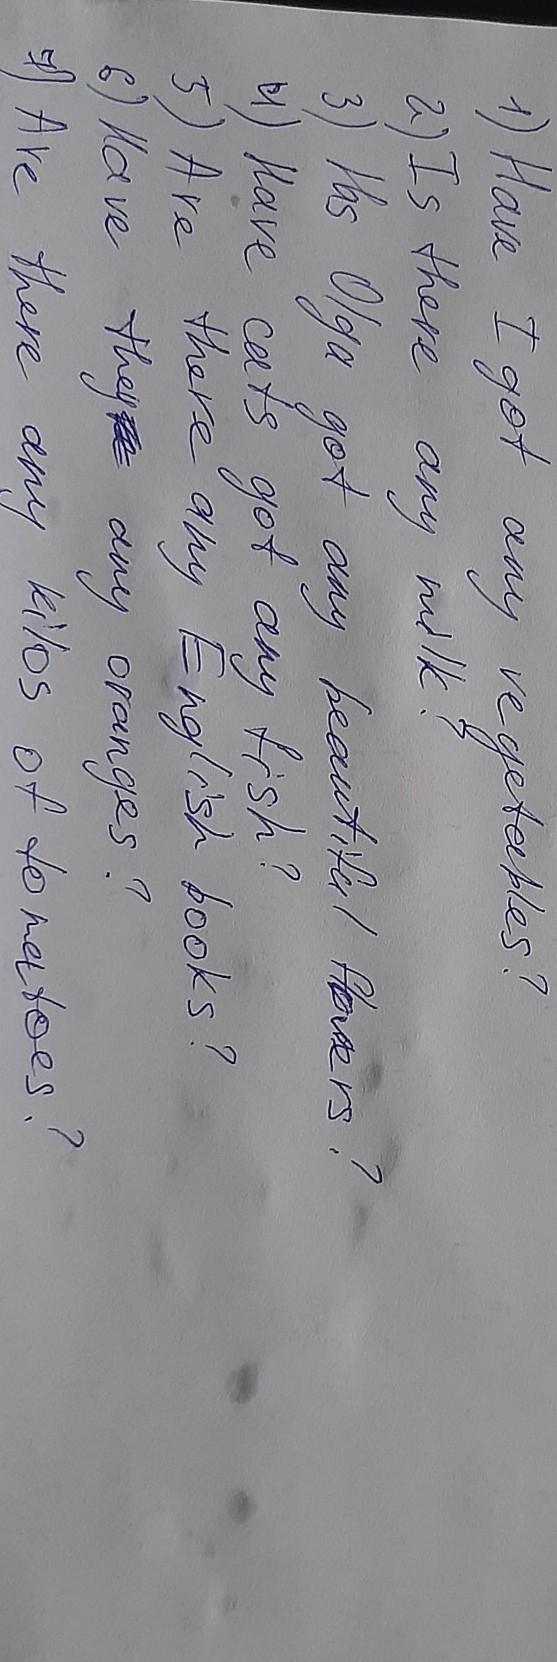 1) Have I got any vegetables?
2) Is there any milk?
3) Has Olga got any beautiful flowers?
4) Have cats got any fish?
5) Are there any English books?
6) Have they any oranges?
7) Are there any kilos of tomatoes?